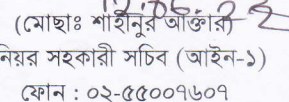 12.06.22
(মোছাঃ শাহীনুর আক্তার)
নিয়র সহকারী সচিব (আইন-১)
ফোন : ০২-৫৫০০৭৬০৭